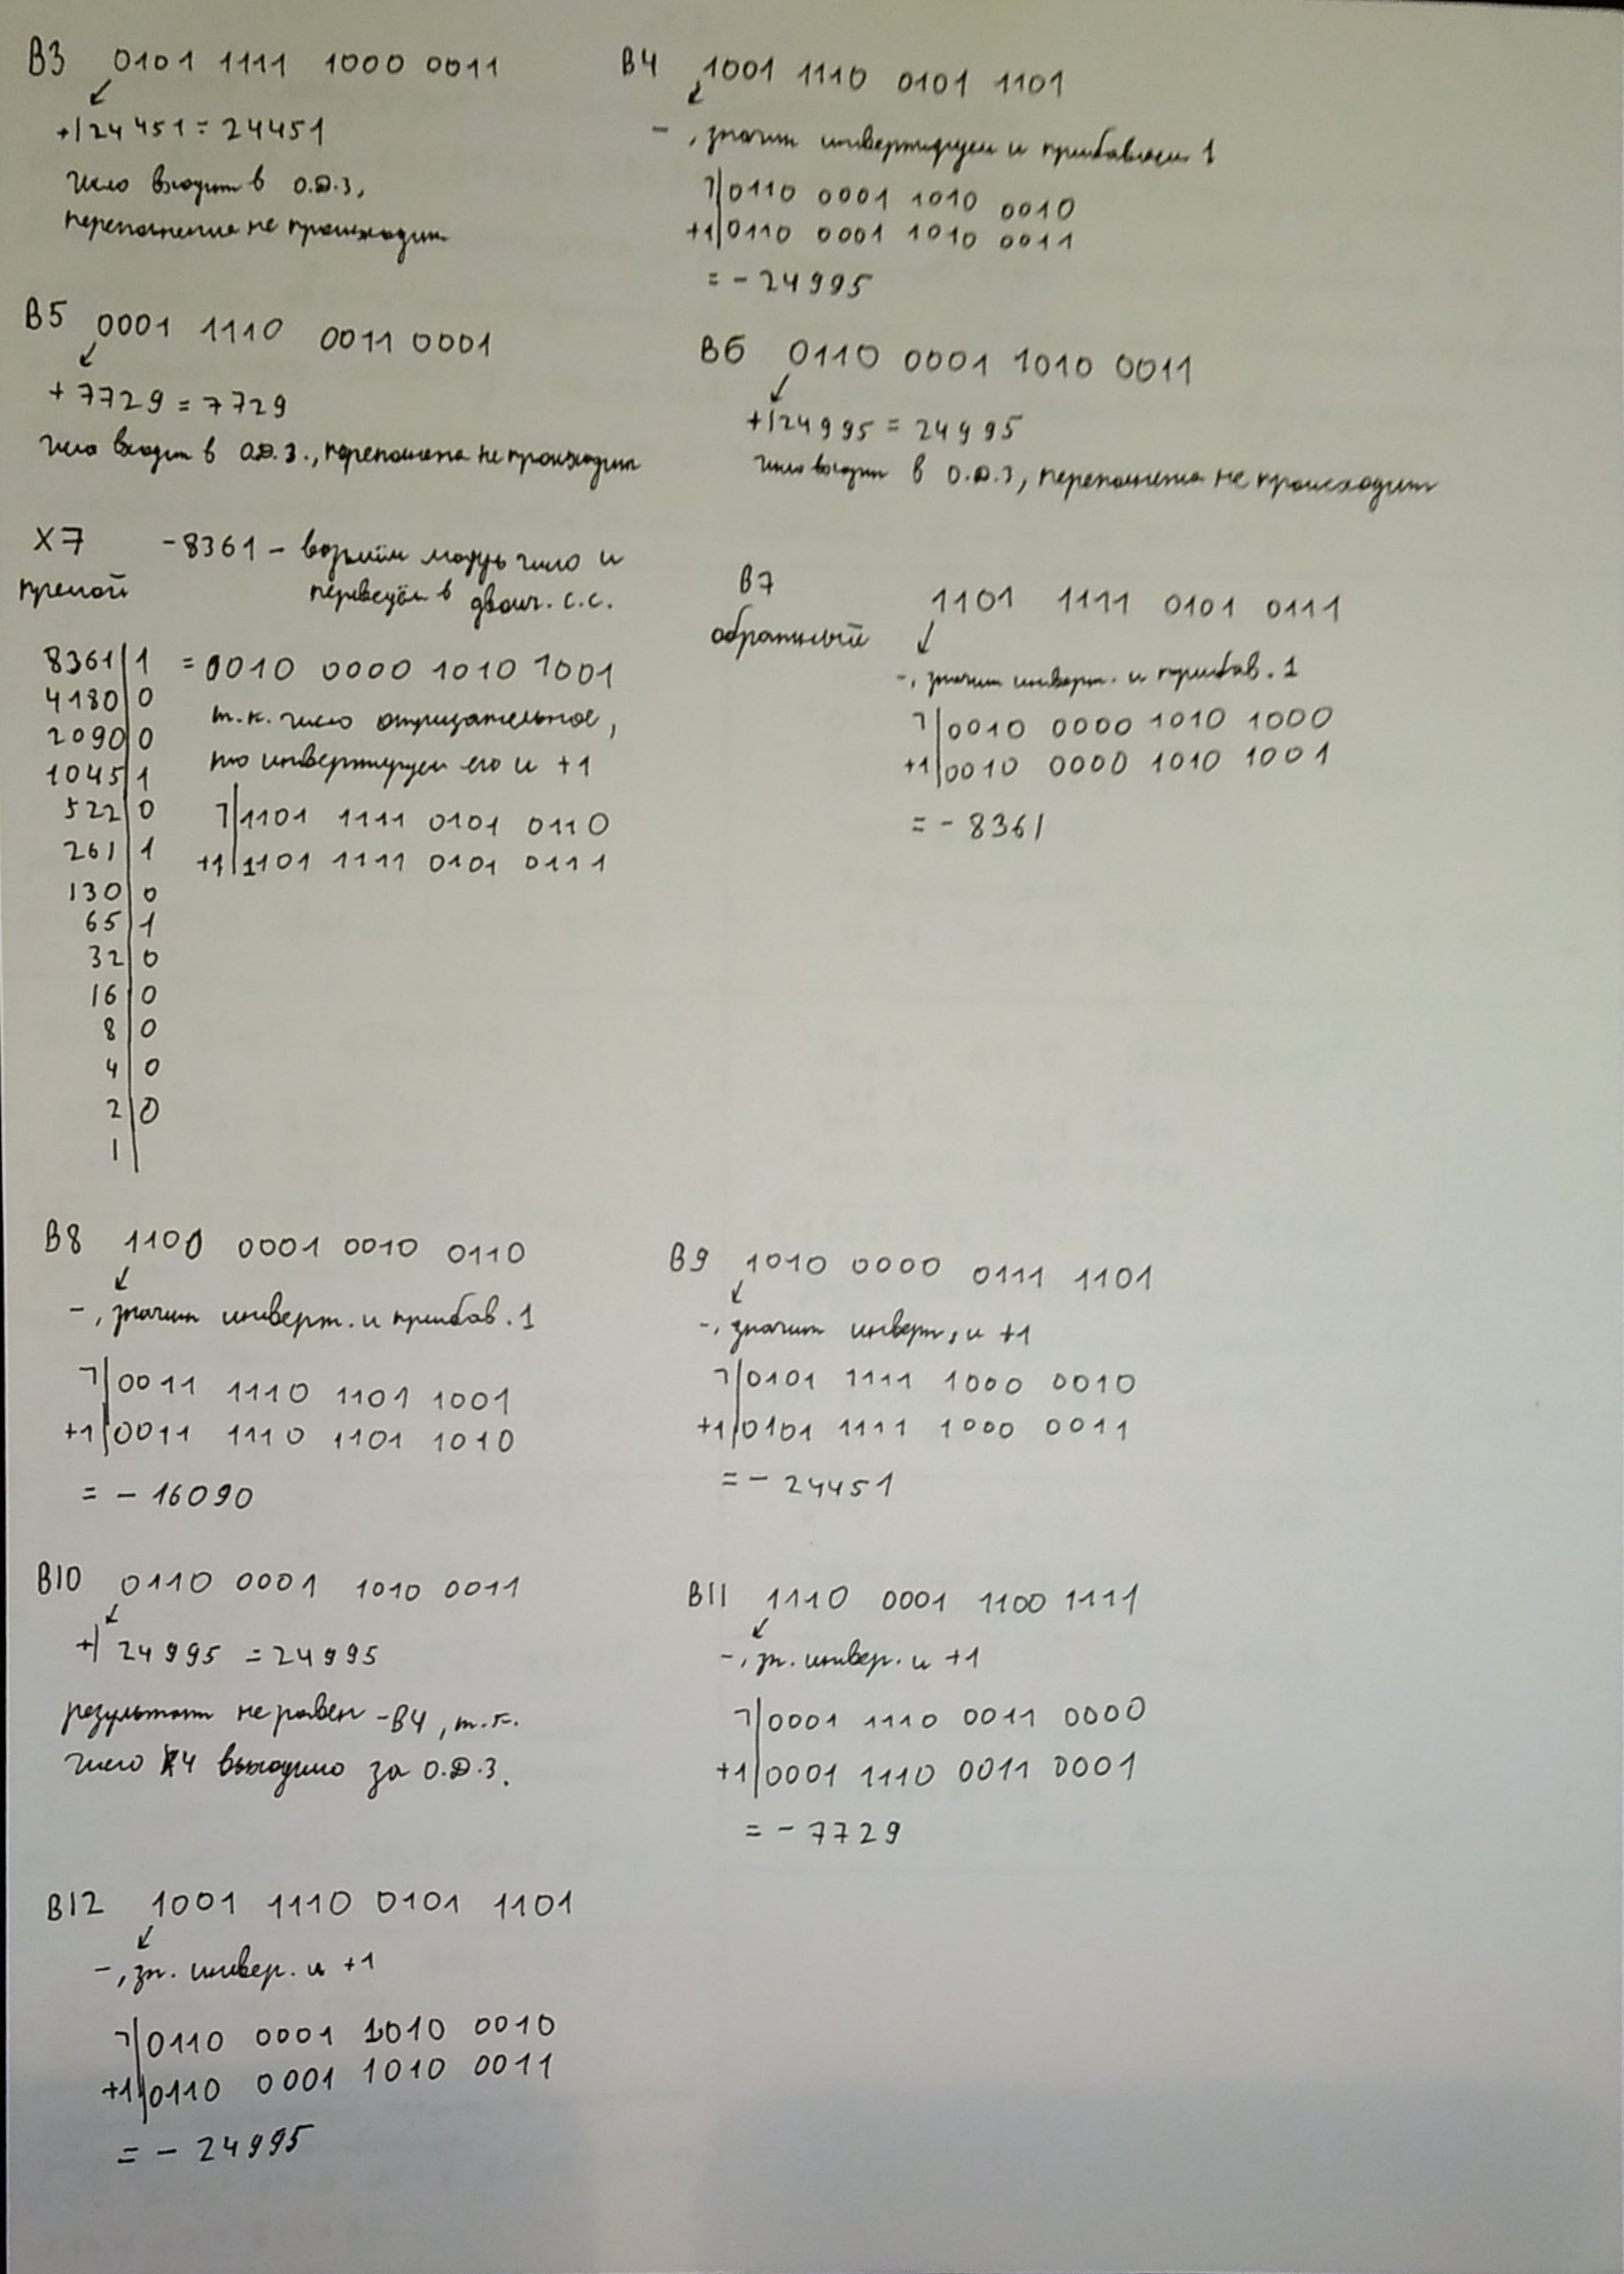 В3 0101 1111 1000 0011
+|24451 = 24451
число входит в О.Д.З,
переполнение не происходит
В4 1001 1110 0101 1101
-, значит инвертируем и прибавляем 1
⌉|0110 0001 1010 0010
+1|0110 0001 1010 0011
= - 24995
В5 0001 1110 0011 0001
+ 7729 = 7729
число входит в О.Д.З., переполнение не происходит
В6 0110 0001 1010 0011
+|24995 = 24995
число входит в О.Д.З, переполнение не происходит
Х7 -8361 - возьмём модуль число и
прямой переведём в двоич. с.с.
8361|1 = 0010 0000 1010 1001
4180|0 т.к. число отрицательное,
2090|0 то инвертируем его и +1
1045|1
522|0 ⌉|1101 1111 0101 0110
261|1 +1|1101 1111 0101 0111
130|0
65|1
32|0
16|0
8|0
4|0
2|0
1|
В7 1101 1111 0101 0111
обратный
-, значит инверт. и прибав. 1
⌉|0010 0000 1010 1000
+1|0010 0000 1010 1001
= - 8361
В8 1100 0001 0010 0110
-, значит инверт. и прибав. 1
⌉|0011 1110 1101 1001
+1|0011 1110 1101 1010
= - 16090
В9 1010 0000 0111 1101
-, значит инверт, и +1
⌉|0101 1111 1000 0010
+1|0101 1111 1000 0011
= - 24451
В10 0110 0001 1010 0011
+| 24995 = 24995
результат не равен -В4, т.к.
число Х4 выходило за О.Д.З.
В11 1110 0001 1100 1111
-, зн. инвер. и +1
⌉|0001 1110 0011 0000
+1|0001 1110 0011 0001
= - 7729
В12 1001 1110 0101 1101
-, зн. инвер. и +1
⌉|0110 0001 1010 0010
+1|0110 0001 1010 0011
= - 24995